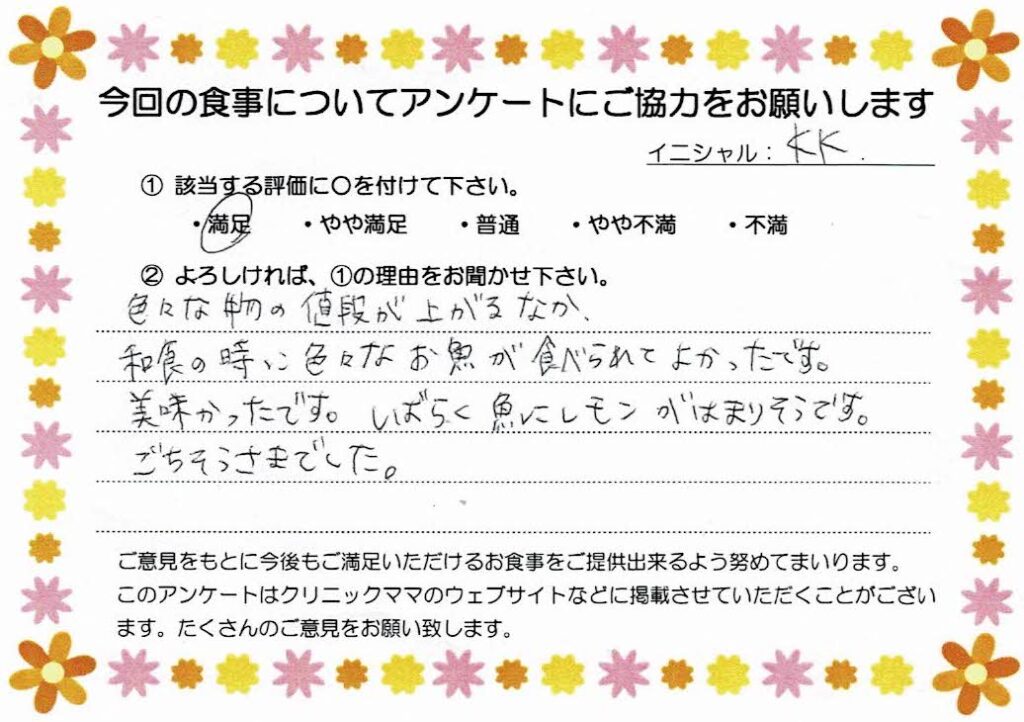 今回の食事についてアンケートにご協力をお願いします
イニシャル：KK.
① 該当する評価に〇を付けて下さい。
・満足 ・やや満足 ・普通 ・やや不満 ・不満
② よろしければ、①の理由をお聞かせ下さい。
色々な物の値段が上がるなか、
和食の時に色々なお魚が食べられてよかったです。
美味かったです。しばらく魚にレモンがはまりそうです。
ごちそうさまでした。
ご意見をもとに今後もご満足いただけるお食事をご提供出来るよう努めてまいります。
このアンケートはクリニックママのウェブサイトなどに掲載させていただくことがござい
ます。たくさんのご意見をお願い致します。